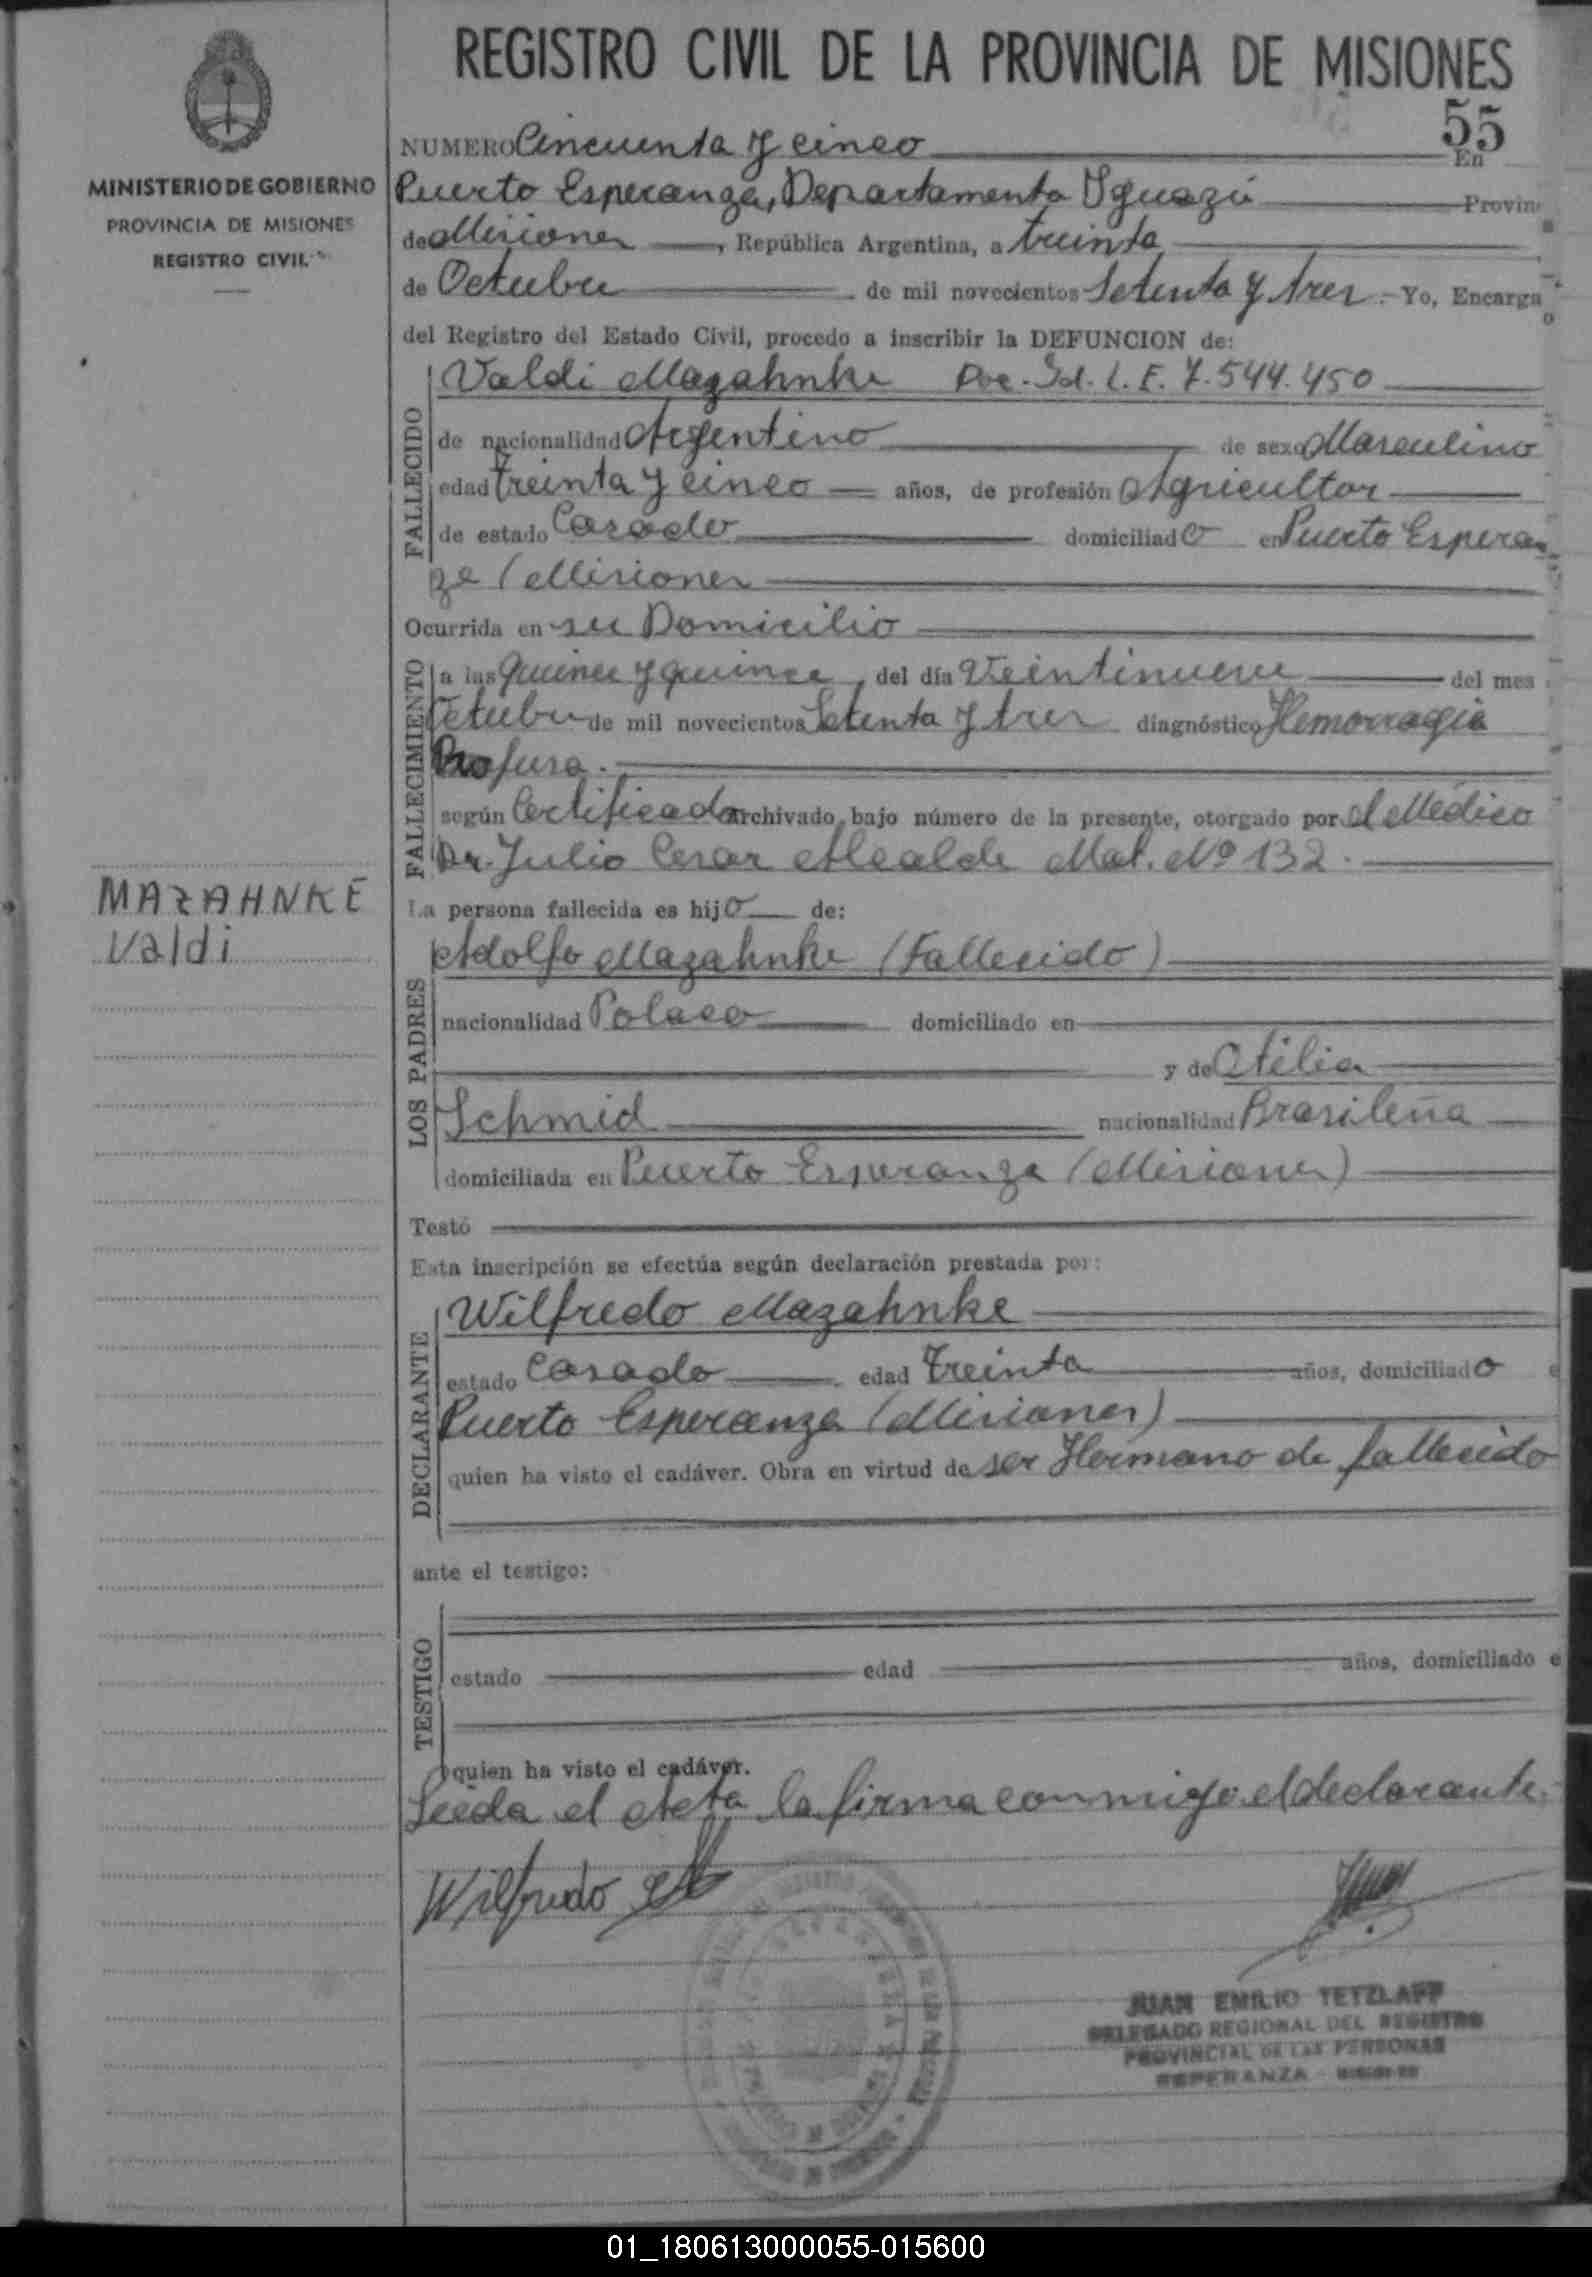 REGISTRO CIVIL DE LA PROVINCIA DE MISIONES
55
MINISTERIO DE GOBIERNO
PROVINCIA DE MISIONES
REGISTRO CIVIL
NUMERO Cincuenta y cinco En
Puerto Esperanza, Departamento Iguazú Provin
de Misiones, República Argentina, a treinta
de Octubre de mil novecientos Setenta y tres. Yo, Encarga
del Registro del Estado Civil, procedo a inscribir la DEFUNCION de:
FALLECIDO
Valdi Mazahnke Doc. Id. L. E. 7.544.450
de nacionalidad Argentino de sexo Masculino
edad treinta y cinco años, de profesión Agricultor
de estado Casado domiciliado en Puerto Esperan
za (Misiones
Ocurrida en su Domicilio
FALLECIMIENTO
a las Quince y quince, del día Veintinueve del mes
Octubre de mil novecientos Setenta y tres diagnóstico Hemorragia
Profusa.
según Certificado archivado bajo número de la presente, otorgado por el Médico
Dr. Julio Cesar Alcalde Mat. Nº 132.
MAZAHNKE
Valdi
La persona fallecida es hijo de:
LOS PADRES
Adolfo Mazahnke (Fallecido)
nacionalidad Polaco domiciliado en
y de Otilia
Schmid nacionalidad Brasileña
domiciliada en Puerto Esperanza (Misiones)
Testó
Esta inscripción se efectúa según declaración prestada por:
DECLARANTE
Wilfredo Mazahnke
estado Casado edad treinta años, domiciliado e
Puerto Esperanza (Misiones)
quien ha visto el cadáver. Obra en virtud de ser Hermano de fallecido
ante el testigo:
TESTIGO
estado edad años, domiciliado e
quien ha visto el cadáver.
Leida el Acta la firma conmigo el declarante.
Wilfredo
JUAN EMILIO TETZLAFF
DELEGADO REGIONAL DEL REGISTRO
PROVINCIAL DE LAS PERSONAS
ESPERANZA - MISIONES
01_180613000055-015600